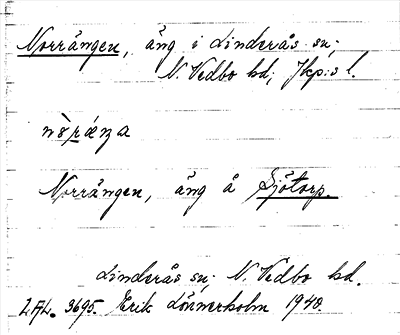 Norrängen, äng i Linderås sn;
N. Vedbo hd; Jkp:s l.
Norrängen, äng å Sjötorp.
Linderås sn; N. Vedbo hd.
LAL. 3695. Erik Lönnerholm 1940.